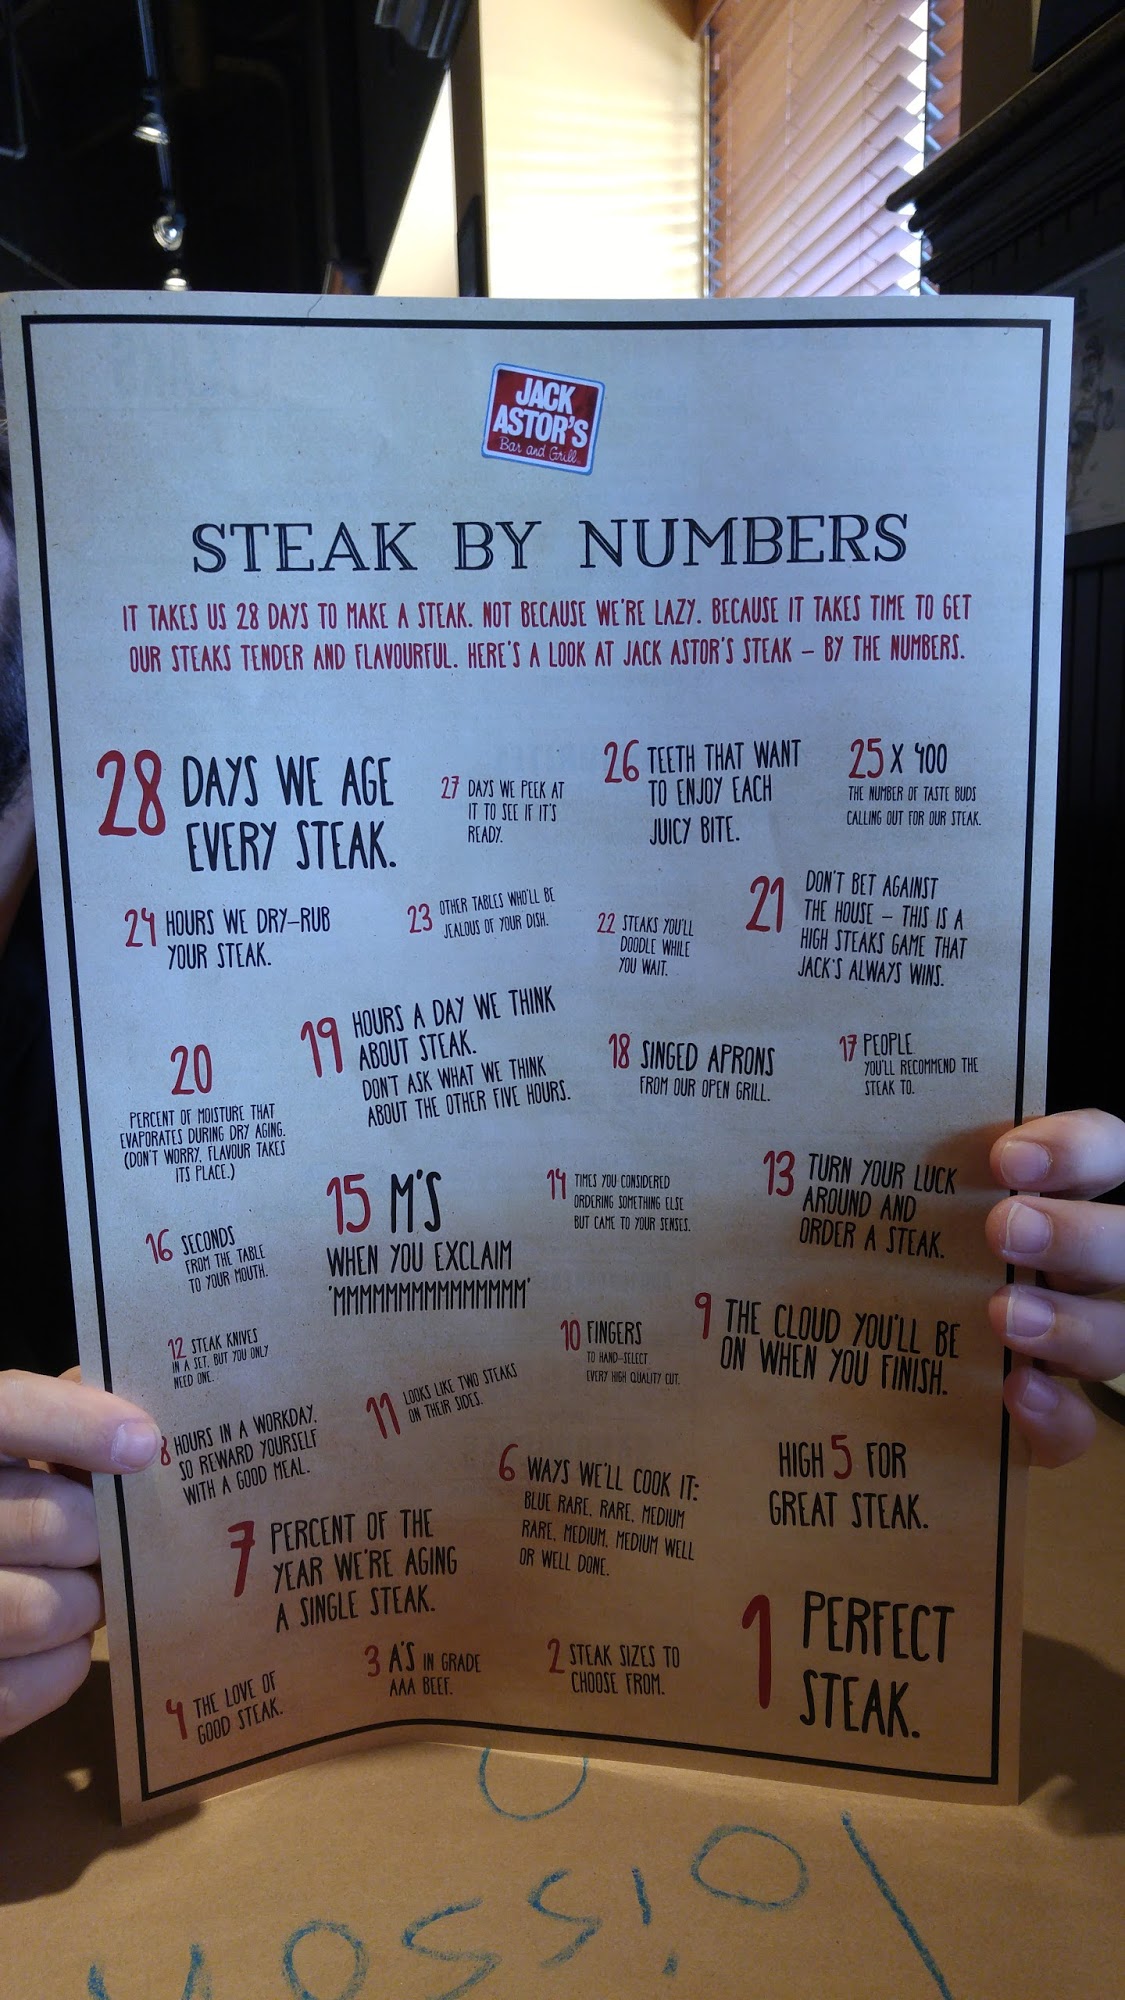 JACK
ASTOR'S
Bar and Grill
STEAK BY NUMBERS
IT TAKES US 28 DAYS TO MAKE A STEAK. NOT BECAUSE WE'RE LAZY. BECAUSE IT TAKES TIME TO GET
OUR STEAKS TENDER AND FLAVOURFUL. HERE'S A LOOK AT JACK ASTOR'S STEAK – BY THE NUMBERS.
28 DAYS WE AGE
EVERY STEAK.
27 DAYS WE PEEK AT
IT TO SEE IF IT'S
READY.
26 TEETH THAT WANT
TO ENJOY EACH
JUICY BITE.
25 X 400
THE NUMBER OF TASTE BUDS
CALLING OUT FOR OUR STEAK.
24 HOURS WE DRY-RUB
YOUR STEAK.
23 OTHER TABLES WHO'LL BE
JEALOUS OF YOUR DISH.
22 STEAKS YOU'LL
DOODLE WHILE
YOU WAIT.
21 DON'T BET AGAINST
THE HOUSE – THIS IS A
HIGH STEAKS GAME THAT
JACK'S ALWAYS WINS.
20
PERCENT OF MOISTURE THAT
EVAPORATES DURING DRY AGING.
(DON'T WORRY, FLAVOUR TAKES
ITS PLACE.)
19 HOURS A DAY WE THINK
ABOUT STEAK.
DON'T ASK WHAT WE THINK
ABOUT THE OTHER FIVE HOURS.
18 SINGED APRONS
FROM OUR OPEN GRILL.
17 PEOPLE
YOU'LL RECOMMEND THE
STEAK TO.
16 SECONDS
FROM THE TABLE
TO YOUR MOUTH.
15 M'S
WHEN YOU EXCLAIM
'MMMMMMMMMMMMMMM'
14 TIMES YOU CONSIDERED
ORDERING SOMETHING ELSE
BUT CAME TO YOUR SENSES.
13 TURN YOUR LUCK
AROUND AND
ORDER A STEAK.
12 STEAK KNIVES
IN A SET, BUT YOU ONLY
NEED ONE.
11 LOOKS LIKE TWO STEAKS
ON THEIR SIDES.
10 FINGERS
TO HAND-SELECT
EVERY HIGH QUALITY CUT.
9 THE CLOUD YOU'LL BE
ON WHEN YOU FINISH.
8 HOURS IN A WORKDAY.
SO REWARD YOURSELF
WITH A GOOD MEAL.
7 PERCENT OF THE
YEAR WE'RE AGING
A SINGLE STEAK.
6 WAYS WE'LL COOK IT:
BLUE RARE, RARE, MEDIUM
RARE, MEDIUM, MEDIUM WELL
OR WELL DONE.
HIGH 5 FOR
GREAT STEAK.
4 THE LOVE OF
GOOD STEAK.
3 A'S IN GRADE
AAA BEEF.
2 STEAK SIZES TO
CHOOSE FROM.
1 PERFECT
STEAK.